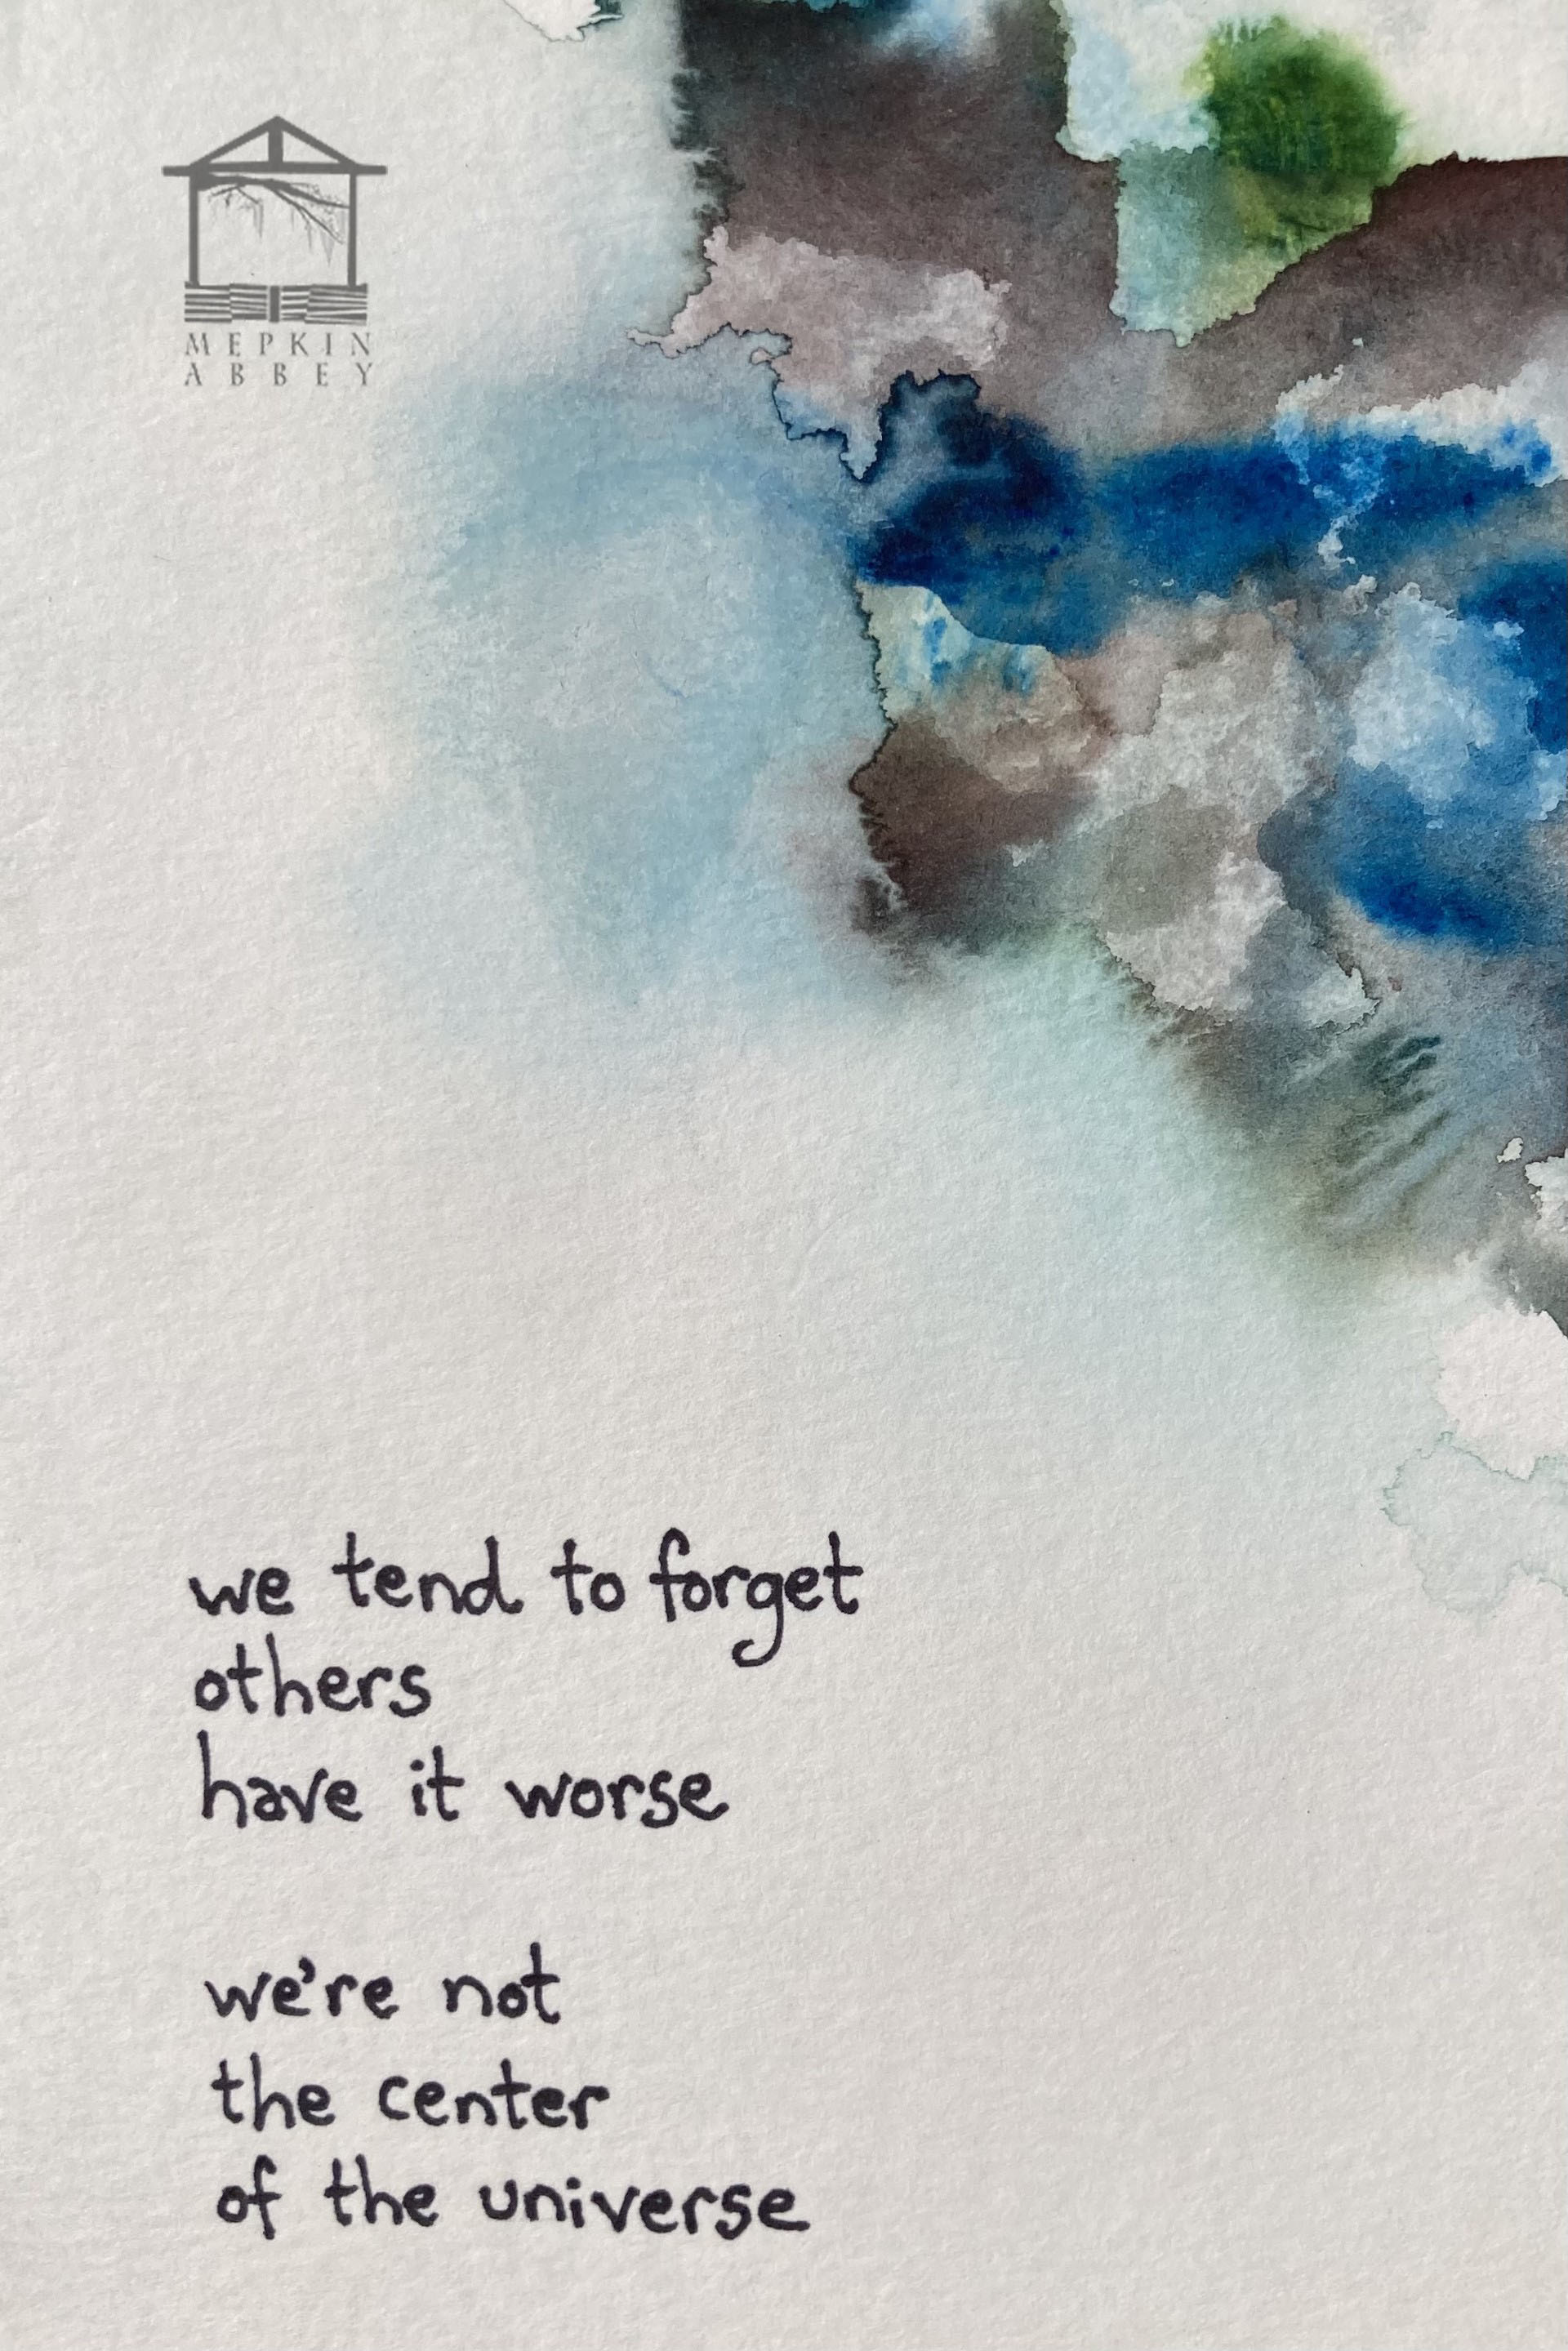 MEPKIN
ABBEY
we tend to forget
others
have it worse
we're not
the center
of the universe